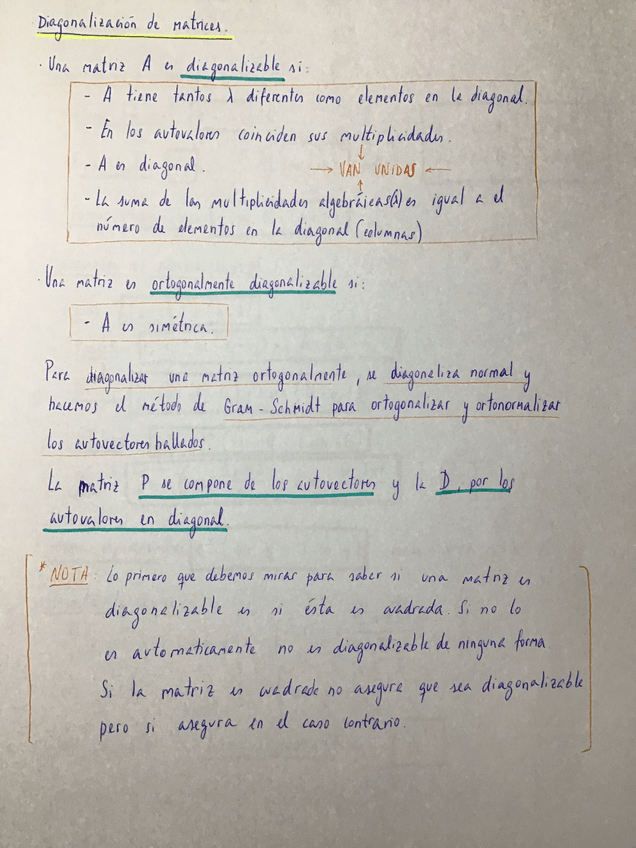 Diagonalización de matrices.
· Una matriz A es diagonalizable si:
- A tiene tantos λ diferentes como elementos en la diagonal.
- En los autovalores coinciden sus multiplicidades.
- A es diagonal. → VAN UNIDAS ←
- La suma de las multiplicidades algebráicas(λ) es igual a el
número de elementos en la diagonal (columnas)
· Una matriz es ortogonalmente diagonalizable si:
- A es simétrica.
Para diagonalizar una matriz ortogonalmente, se diagonaliza normal y
hacemos el método de Gram-Schmidt para ortogonalizar y ortonormalizar
los autovectores hallados.
La matriz P se compone de los autovectores y la D, por los
autovalores en diagonal.
* NOTA: Lo primero que debemos mirar para saber si una matriz es
diagonalizable es si ésta es cuadrada. Si no lo
es automaticamente no es diagonalizable de ninguna forma.
Si la matriz es cuadrada no asegura que sea diagonalizable
pero si asegura en el caso contrario.